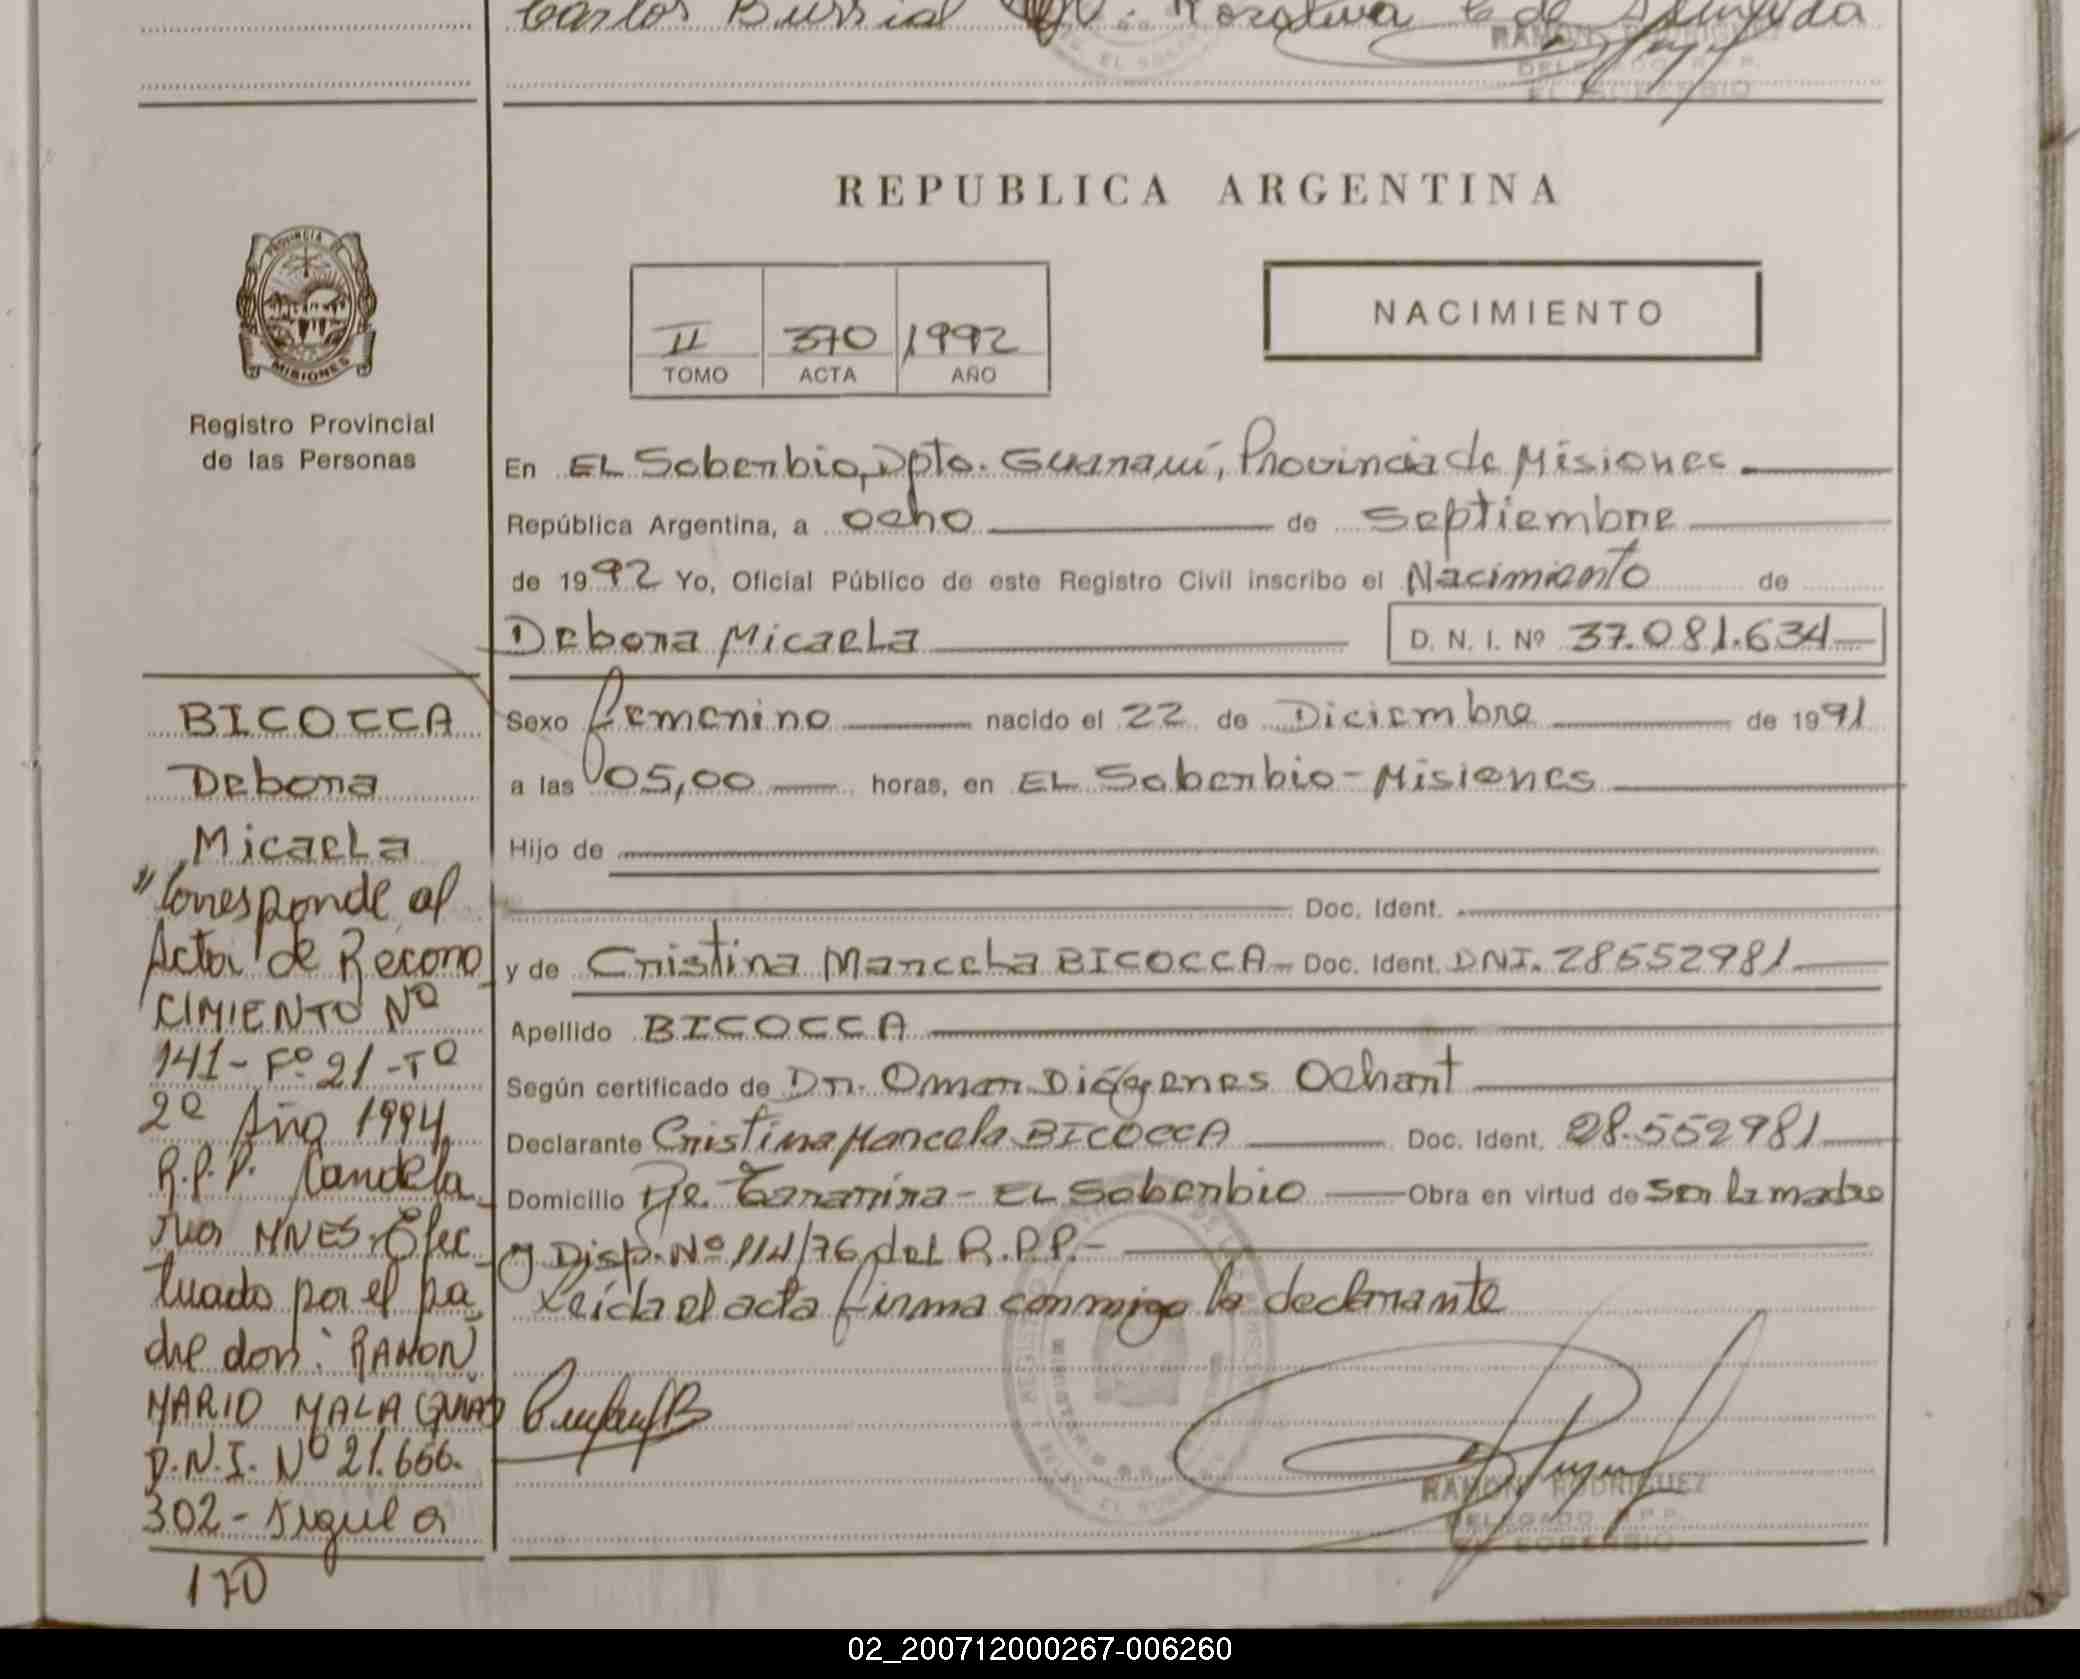 Carlos
REPUBLICA ARGENTINA
PROVINCIA DE
MISIONES
II 370 1992
TOMO ACTA AÑO
NACIMIENTO
Registro Provincial
de las Personas
En EL Soberbio, Dpto. Guaraní, Provincia de Misiones
República Argentina, a ocho de Septiembre
de 1992 Yo, Oficial Público de este Registro Civil inscribo el Nacimiento de
Debora Micaela D. N. I. Nº 37.081.634
Sexo femenino nacido el 22 de Diciembre de 1991
a las 05,00 horas, en EL Soberbio - Misiones
Hijo de
Doc. Ident.
y de Cristina Marcela BICOCCA Doc. Ident. DNI. 28552981
Apellido BICOCCA
Según certificado de Dr. Omar Diógenes Ochart
Declarante Cristina Marcela BICOCCA Doc. Ident. 28.552981
Domicilio Pje. Tararira - EL Soberbio Obra en virtud de Ser la madre
y Disp. Nº 114/76 del R.P.P.-
Leída el acta firma conmigo la declarante
RAMON RODRIGUEZ
DELEGADO R.P.P.
EL SOBERBIO
BICOCCA
Debora
Micaela
"Corresponde al
Acta de Recono
CIMIENTO Nº
141 - Fº 21 - Tº
2º Año 1994
R.P.P. Candela
ria MNES. Efec
tuado por el pa
dre don: RAMON
MARIO MALAQUIAS
D.N.I. Nº 21.656.
302 - Sigue a
170
02_200712000267-006260